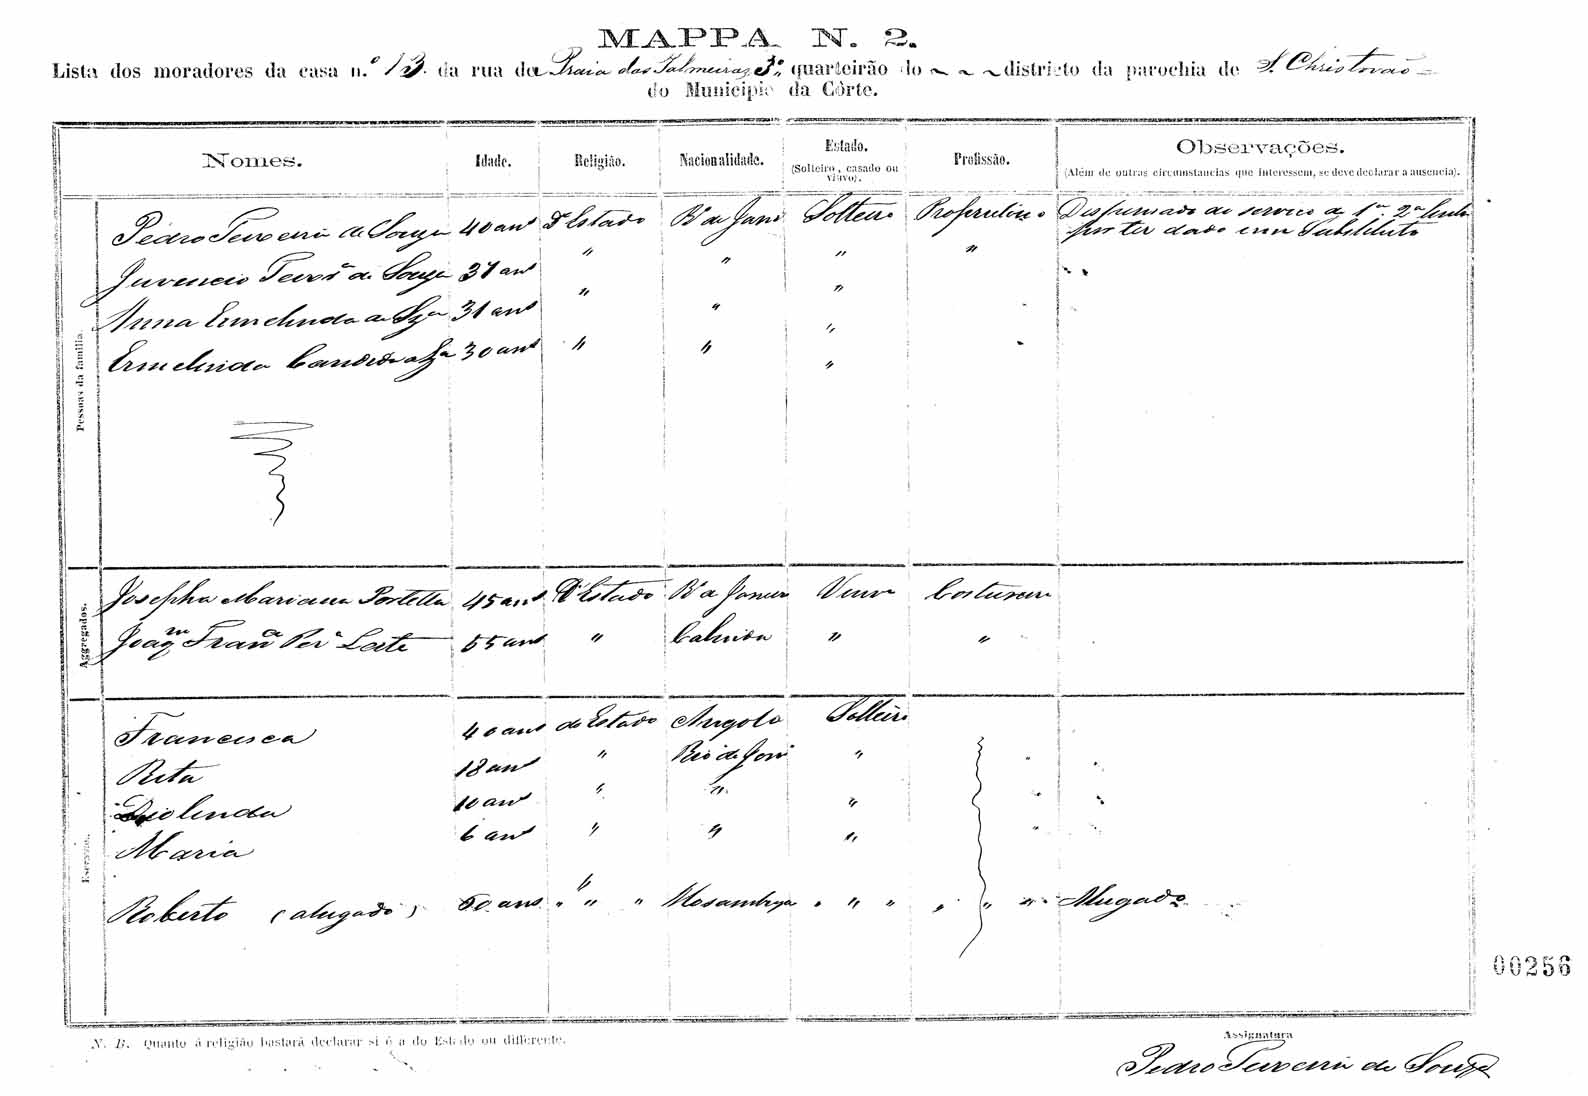 MAPPA N. 2.
Lista dos moradores da casa n.º 13. da rua da Praia das Palmeiras 3º quarteirão do ~ ~ ~ districto da parochia de S. Christovão
do Municipio da Côrte.
Nomes. Idade. Religião. Nacionalidade. Estado. (Solteiro, casado ou viuvo). Profissão. Observações. (Além de outras circumstancias que interessem, se deve declarar a ausencia).
Pessoas da familia.
Pedro Teixeira de Souza 40 ans d'Estado Rº de Janº Solteiro Proprietario Dispensado do serviço da 1ª 2ª
por ter dado um Substituto
Juvencio Teixrª de Souza 37 ans " " " "
Anna Ermelinda de Sza 31 ans " " "
Ermelinda Candida Sza 30 ans " " "
Aggregados.
Josepha Mariana Portella 45 ans d'Estado Rº de Janeiro Viuva Costureira
Joaqm Franca Perª Leite 55 ans " " "
Escravos.
Francisca 40 ans do Estado Angola Solteira
Rita 18 ans " Rio de Janº "
Diolinda 10 ans " " "
Maria 6 ans " " "
Roberto (alugado) 50 ans " " " Mosambique " " " " " " Alugado
00256
N. B. Quanto á religião bastará declarar si é a do Estado ou differente.
Assignatura
Pedro Teixeira de Souza